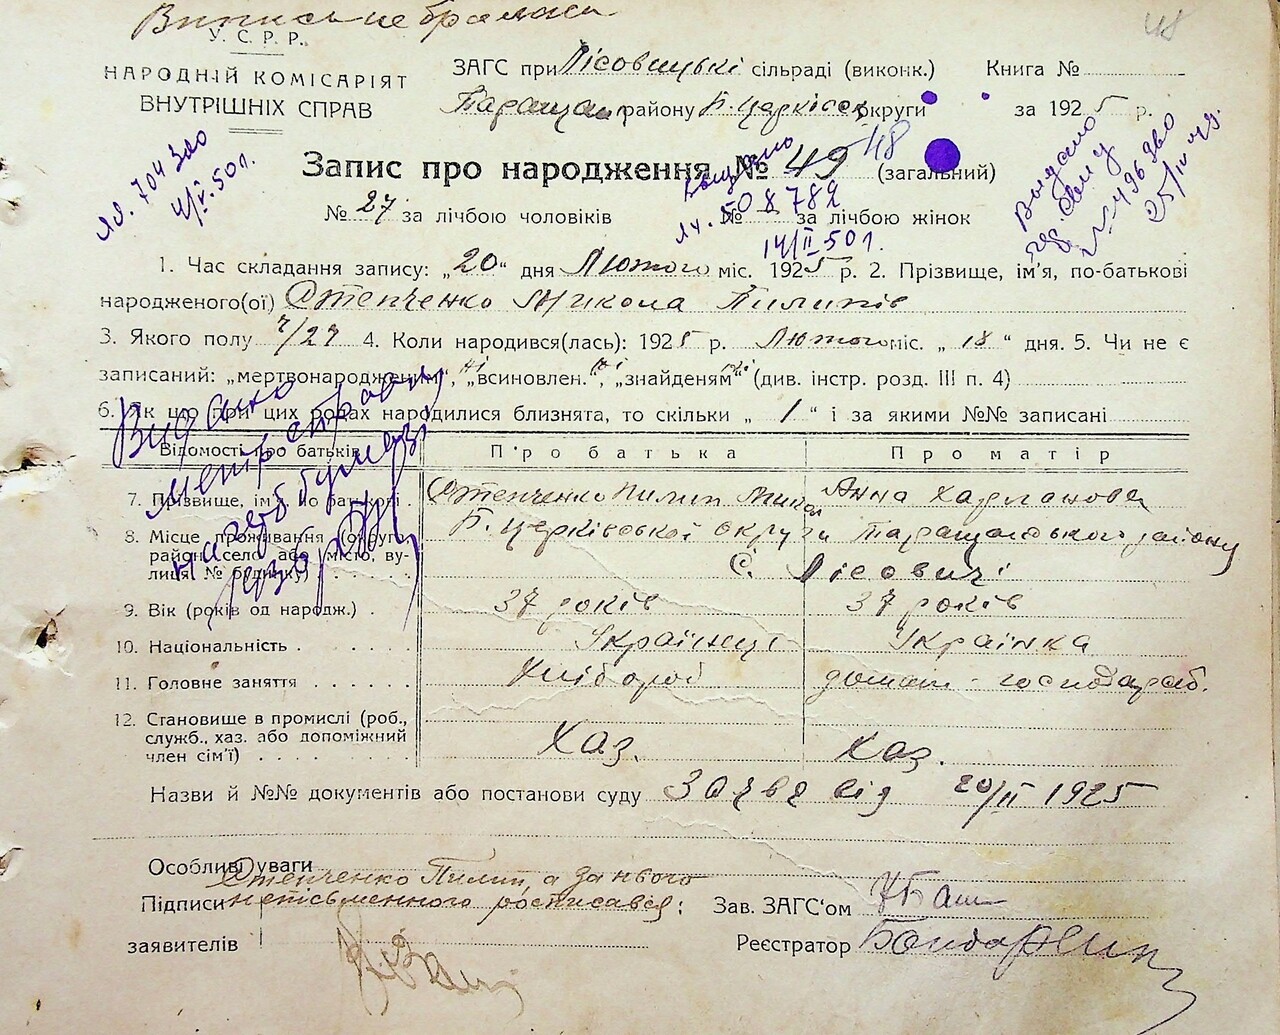 Виписы не бралося
48
У.С.Р.Р.
НАРОДНІЙ КОМІСАРІЯТ
ВНУТРІШНІХ СПРАВ
ЗАГС при Лісовицькі сільраді (виконк.) Книга №
Таращан. району Б. Церківск. округи за 1925 р.
ЛЯ. 704300
4/V. 50 г.
Запис про народження № 49 48 (загальний)
Выдано
№ 27 за лічбою чоловіків № за лічбою жінок
508782
14/II 50 г.
Выдано
25/IV
1. Час складання запису: „20“ дня Лютого міс. 1925 р. 2. Прізвище, ім'я, по-батькові
народженого(ої) Степченко Микола Пилипів
3. Якого полу ч/27 4. Коли народився(лась): 1925 р. Лютого міс. „18“ дня. 5. Чи не є
записаний: „мертвонародженим“, „всиновлен.“, „знайденям“ (див. інстр. розд. III п. 4)
6. Як що при цих родах народилися близнята, то скільки „1“ і за якими №№ записані
Видано
Відомості про батьків Про батька Про матір
7. Прізвище, ім'я, по батькові Степченко Пилип Микол Анна Харланова
8. Місце проживання (округа, район, село або місто, вулиця, № будинку) Б. Церківської округи Таращанського району
с. Лісовичі
9. Вік (років од народж.) 37 років 37 років
10. Національність Українець Українка
11. Головне заняття Хлібороб домаш - господар.
12. Становище в промислі (роб.,
служб., хаз. або допоміжний
член сім'ї) Хаз. Хаз.
Назви й №№ документів або постанови суду Заява від 20/II 1925
Особливі уваги
Степченко Пилип, а за нього
Підписи неписьменного росписався: Зав. ЗАГС'ом
заявителів Реєстратор